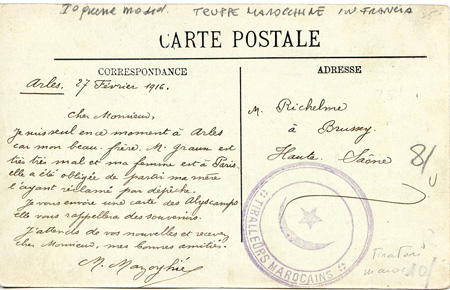 Iª guerra mond. TRUPPE MAROCCHINE IN FRANCIA
CARTE POSTALE
CORRESPONDANCE
Arles. 27 Février 1916.
Cher Monsieur,
Je suis seul en ce moment à Arles
car mon beau-frère, M. Graum est
très très mal et ma femme est à Paris,
elle a été obligée de partir ma mère
l'ayant réclamé par dépêche.
Je vous envoie une carte des Alyscamps
elle vous rappellera des souvenirs.
J'attends de vos nouvelles et recevez
cher Monsieur, mes bonnes amitiés.
ADRESSE
M. Richelme
à
Brussey.
Haute. Saône
8/
TIRAILLEURS MAROCAINS
10/